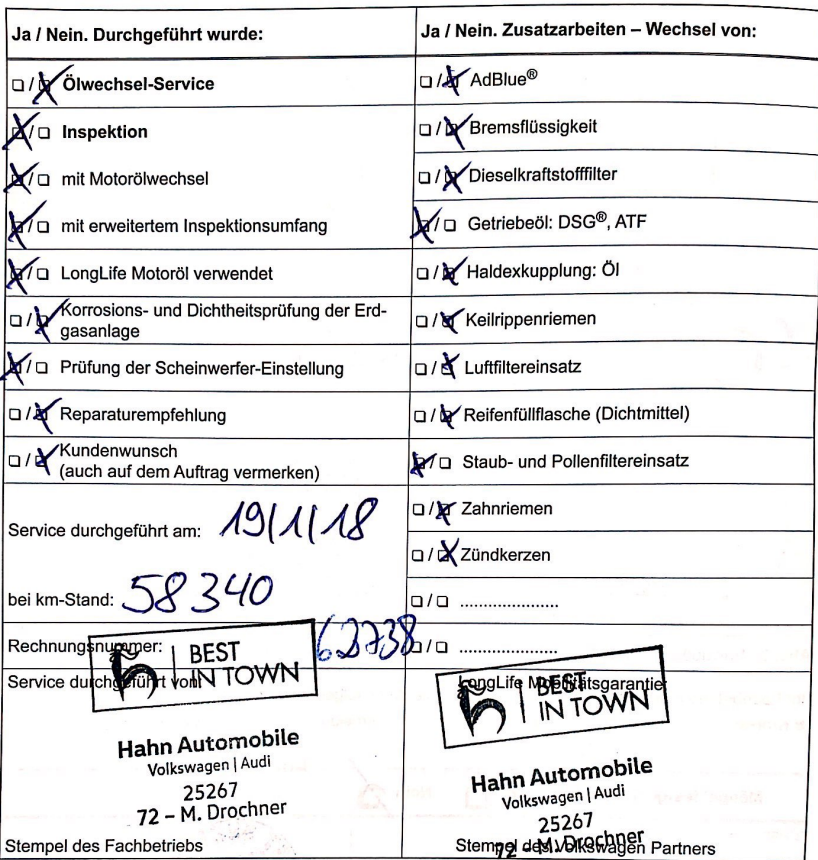 Ja / Nein. Durchgeführt wurde:
☐ / ☒ Ölwechsel-Service
☒ / ☐ Inspektion
☒ / ☐ mit Motorölwechsel
☒ / ☐ mit erweitertem Inspektionsumfang
☒ / ☐ LongLife Motoröl verwendet
☐ / ☒ Korrosions- und Dichtheitsprüfung der Erd-
gasanlage
☒ / ☐ Prüfung der Scheinwerfer-Einstellung
☐ / ☒ Reparaturempfehlung
☐ / ☒ Kundenwunsch
(auch auf dem Auftrag vermerken)
Service durchgeführt am: 19/1/18
bei km-Stand: 58340
Rechnungsnummer:
Service durchgeführt von:
BEST
IN TOWN
Hahn Automobile
Volkswagen | Audi
25267
72 – M. Drochner
Stempel des Fachbetriebs
Ja / Nein. Zusatzarbeiten – Wechsel von:
☐ / ☒ AdBlue®
☐ / ☒ Bremsflüssigkeit
☐ / ☒ Dieselkraftstofffilter
☒ / ☐ Getriebeöl: DSG®, ATF
☐ / ☒ Haldexkupplung: Öl
☐ / ☒ Keilrippenriemen
☐ / ☒ Luftfiltereinsatz
☐ / ☒ Reifenfüllflasche (Dichtmittel)
☒ / ☐ Staub- und Pollenfiltereinsatz
☐ / ☒ Zahnriemen
☐ / ☒ Zündkerzen
☐ / ☐ .....................
☐ / ☐ .....................
LongLife Mobilitätsgarantie:
BEST
IN TOWN
Hahn Automobile
Volkswagen | Audi
25267
72 – M. Drochner
Stempel des Volkswagen Partners